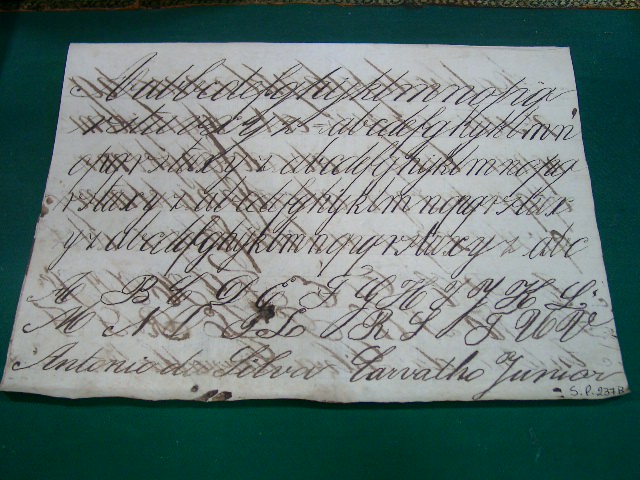 abcdefghijklmnopqr
rstuvxyz abcdefghijklmn
opqrstuvxyz abcdefghijklmnopq
rstuvxyz abcdefghijklmnopqrstuvx
yz abcdefghijklmnopqrstuvxyz abc
A B C D E F G H I Y K L
M N O P Q R S T U V
Antonio da Silva Carvalho Junior
S.P. 237B